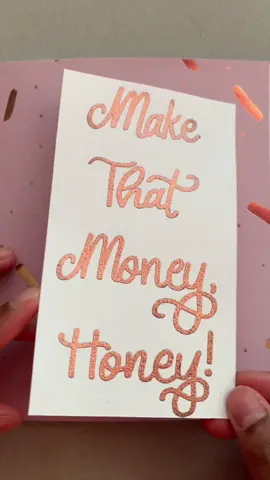 Make
That
Money,
Honey!